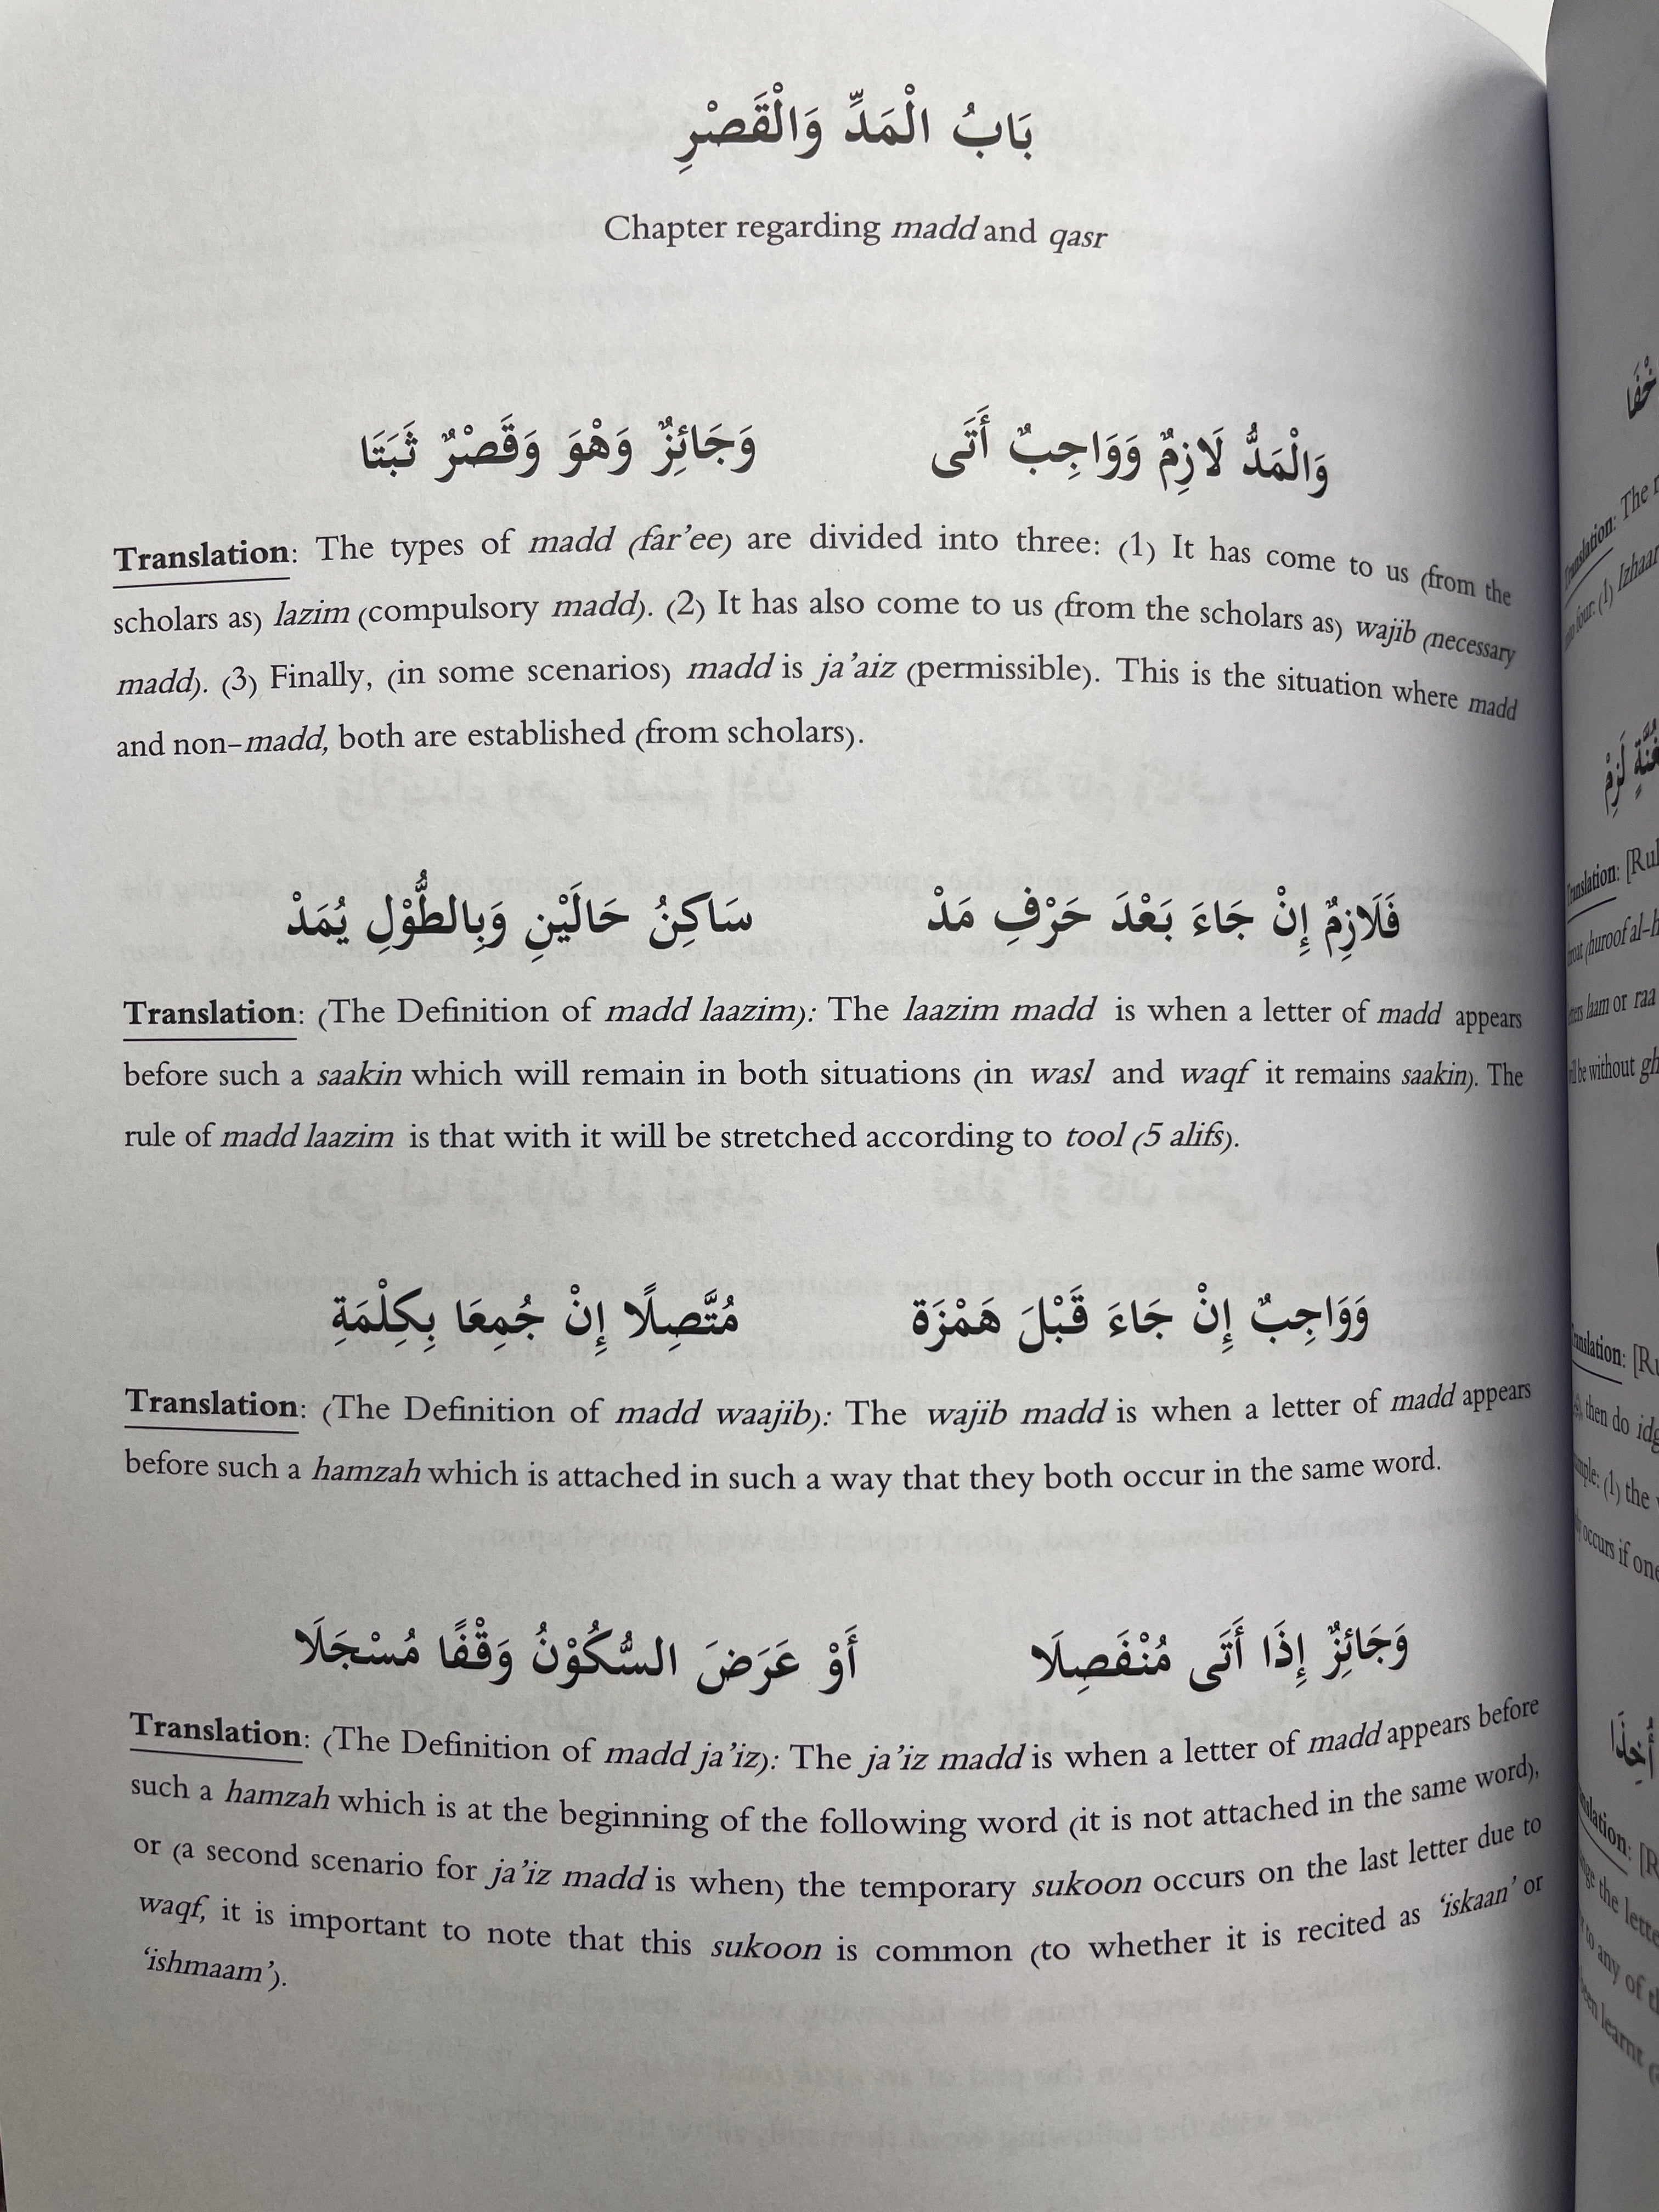 بَابُ الْمَدِّ وَالْقَصْرِ
Chapter regarding madd and qasr
وَالْمَدُّ لَازِمٌ وَوَاجِبٌ أَتَى وَجَائِزٌ وَهْوَ وَقَصْرٌ ثَبَتَا
Translation: The types of madd (far'ee) are divided into three: (1) It has come to us (from the
scholars as) lazim (compulsory madd). (2) It has also come to us (from the scholars as) wajib (necessary
madd). (3) Finally, (in some scenarios) madd is ja'aiz (permissible). This is the situation where madd
and non-madd, both are established (from scholars).
فَلَازِمٌ إِنْ جَاءَ بَعْدَ حَرْفِ مَدْ سَاكِنُ حَالَيْنِ وَبِالطُّوْلِ يُمَدْ
Translation: (The Definition of madd laazim): The laazim madd is when a letter of madd appears
before such a saakin which will remain in both situations (in wasl and waqf it remains saakin). The
rule of madd laazim is that with it will be stretched according to tool (5 alifs).
وَوَاجِبٌ إِنْ جَاءَ قَبْلَ هَمْزَة مُتَّصِلًا إِنْ جُمِعَا بِكِلْمَةِ
Translation: (The Definition of madd waajib): The wajib madd is when a letter of madd appears
before such a hamzah which is attached in such a way that they both occur in the same word.
وَجَائِزٌ إِذَا أَتَى مُنْفَصِلَا أَوْ عَرَضَ السُّكُوْنُ وَقْفًا مُسْجَلَا
Translation: (The Definition of madd ja'iz): The ja'iz madd is when a letter of madd appears before
such a hamzah which is at the beginning of the following word (it is not attached in the same word),
or (a second scenario for ja'iz madd is when) the temporary sukoon occurs on the last letter due to
waqf, it is important to note that this sukoon is common (to whether it is recited as 'iskaan' or
'ishmaam').